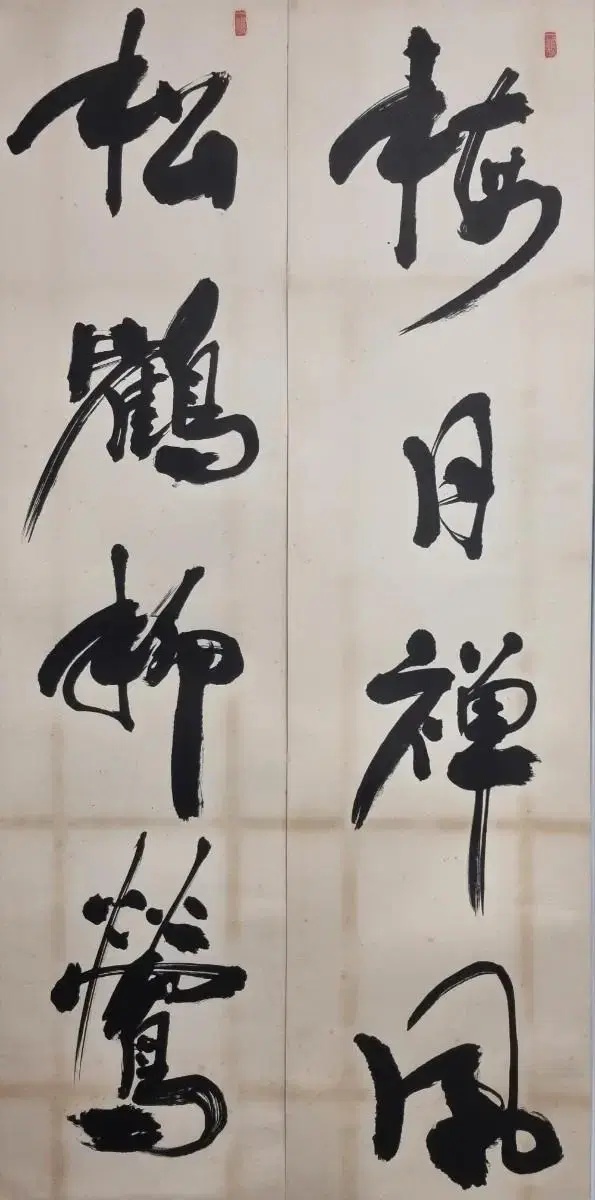 梅月禅風
松鶴柳鶯